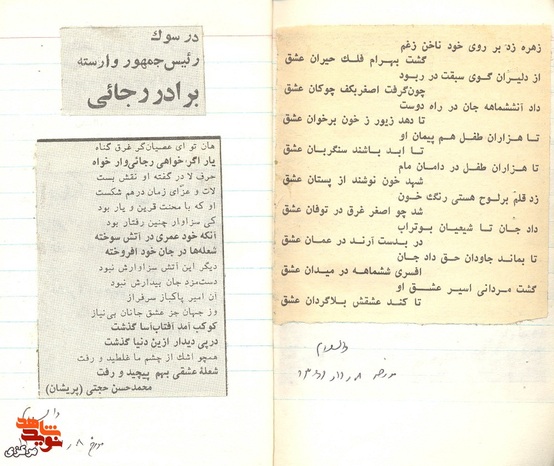 زهره زد بر روی خود ناخن زغم
گشت بهرام فلك حیران عشق
از دلیران گوی سبقت در ربود
چون‌گرفت اصغربکف چوکان عشق
داد آنششماهه جان در راه دوست
تا دهد زیور ز خون برخوان عشق
تا هزاران طفل هم پیمان او
تا ابد باشند سنگربان عشق
تا هزاران طفل در دامان مام
شهد خون نوشند از پستان عشق
زد قلم برلوح هستی رنگ خون
شد چو اصغر غرق در توفان عشق
داد جان تا شیعیان بوتراب
در بدست آرند در عمان عشق
تا بماند جاودان حق داد جان
افسری ششماهه در میدان عشق
گشت مردانی اسیر عشق او
تا کند عشقش بلاگردان عشق
والسلام
در سوك
رئیس‌جمهور وارسته
برادر رجائی
هان تو ای عصیان‌گر غرق گناه
یار اگر خواهی رجائی‌وار خواه
حرف لا در گفته او نقش بست
لات و عزّای زمان درهم شکست
او که با محنت قرین و یار بود
کی سزاوار چنین رفتار بود
آنکه خود عمری در آتش سوخته
شعله‌ها در جان خود افروخته
دیگر این آتش سزاوارش نبود
دست‌مزد جان بیدارش نبود
آن امیر پاکباز سرفراز
وز جهان جز عشق جانان بی‌نیاز
کوکب آمد آفتاب‌آسا گذشت
درپی دیدار ازین دنیا گذشت
همچو اشك از چشم ما غلطید و رفت
شعلهٔ عشقی بهم پیچید و رفت
محمدحسن حجتی (پریشان)
نوید شاهد
مرکزی